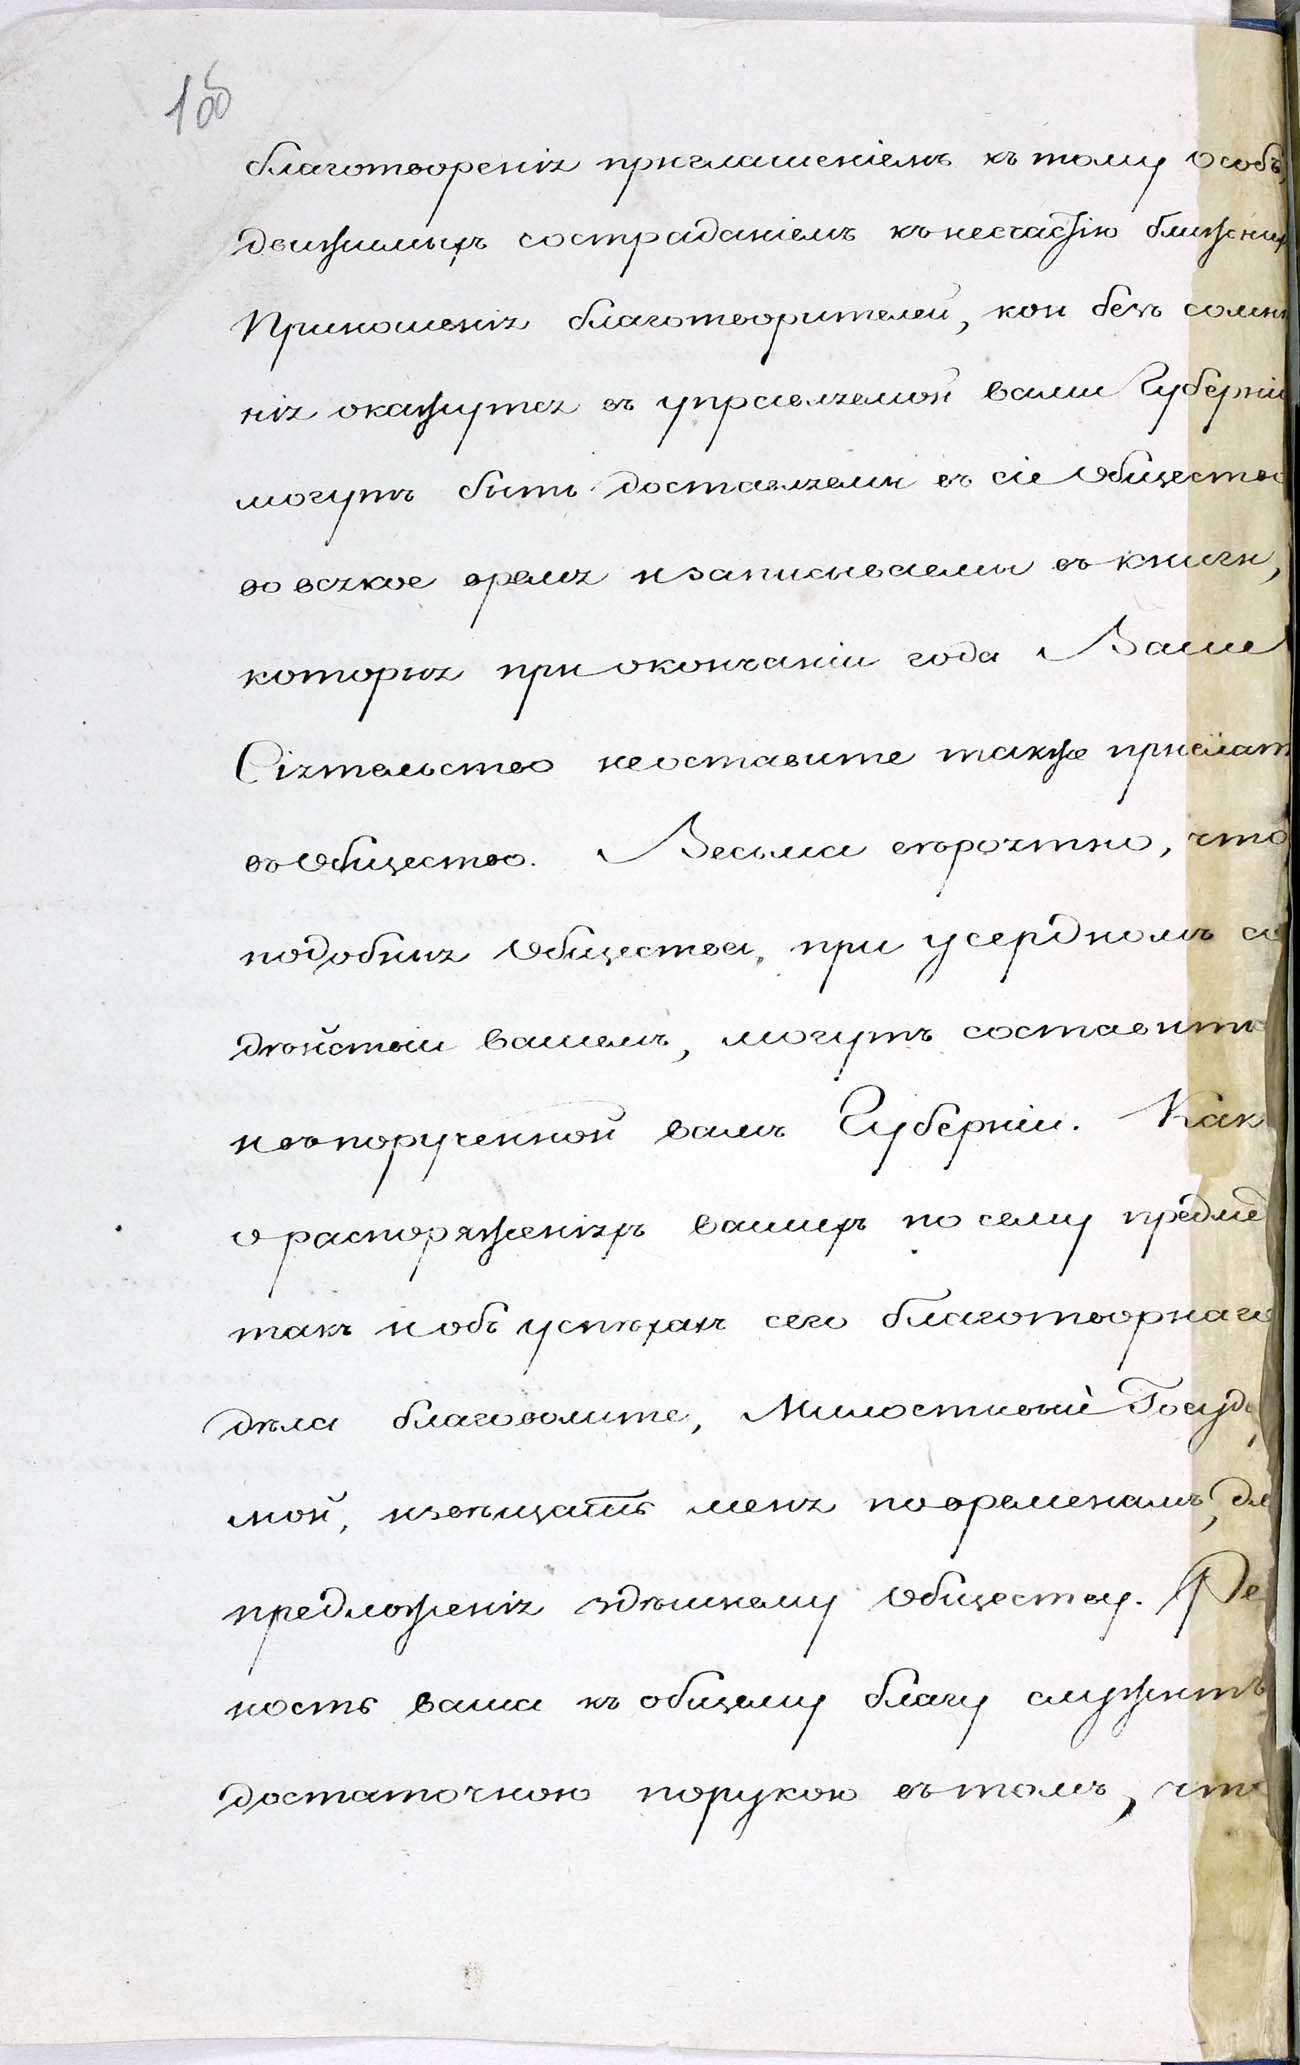 168
благотворенія приглашеніемъ къ тому особъ,
движимыхъ состраданіемъ къ несчастію ближних
Приношенія благотворителей, кои безъ сомнѣ
нія окажутся въ управляемой вами Губерніи
могутъ быть доставляемы въ сіе Общество
во всякое время и записываемы въ книги,
которыя при окончаніи года Ваше
Сіятельство неоставите также прислат
въ Общество. Весьма вѣроятно, что
подобныя Общества, при усердномъ со
дѣйствіи вашемъ, могутъ составить
и въ порученной вамъ Губерніи. Как
о распоряженіяхъ вашихъ по сему предме
такъ и объ успѣхахъ сего благотворнаго
дѣла благоволите, Милостивый Госуда
мой, извѣщать меня повременамъ, дл
предложенія здѣшнему Обществу. Ре
ность ваша къ общему благу служитъ
достаточною порукою въ томъ, что